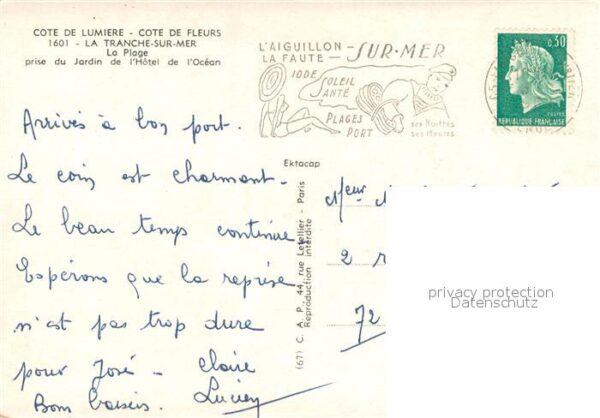 COTE DE LUMIERE - COTE DE FLEURS
1601 - LA TRANCHE-SUR-MER
La Plage
prise du Jardin de l'Hôtel de l'Océan
L'AIGUILLON - SUR-MER
LA FAUTE -
IODE SOLEIL
SANTÉ
PLAGES
PORT
ses Huîtres
ses Moules
0,30
POSTES
REPUBLIQUE FRANÇAISE
Arrivés à bon port.
Le coin est charmant.
Le beau temps continue
Espérons que la reprise
n'est pas trop dure
pour José - Claire
Bons baisers. Lucien
Ektacap
(67) C. A. P. 44, rue Letellier - Paris
Reproduction interdite
Mr
2 r
72
privacy protection
Datenschutz